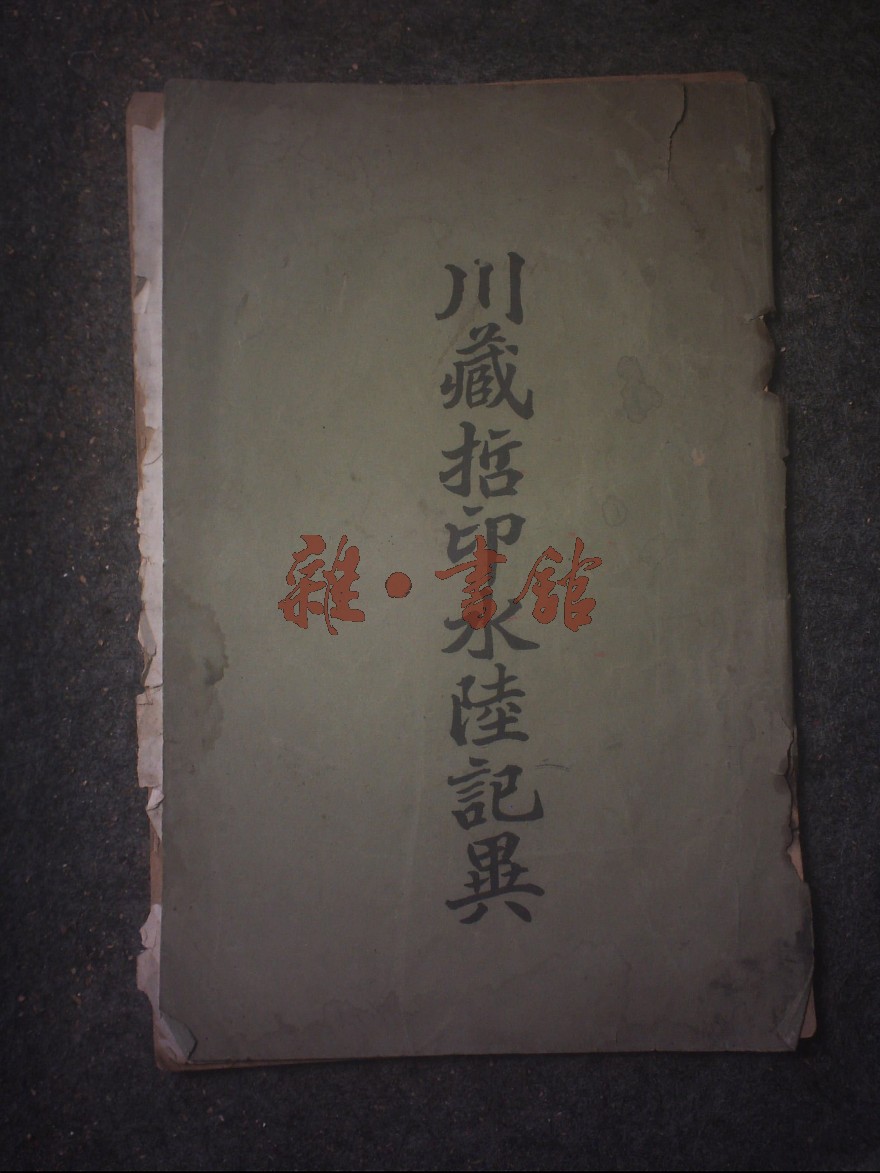 川藏哲印水陸記異
雜·書館